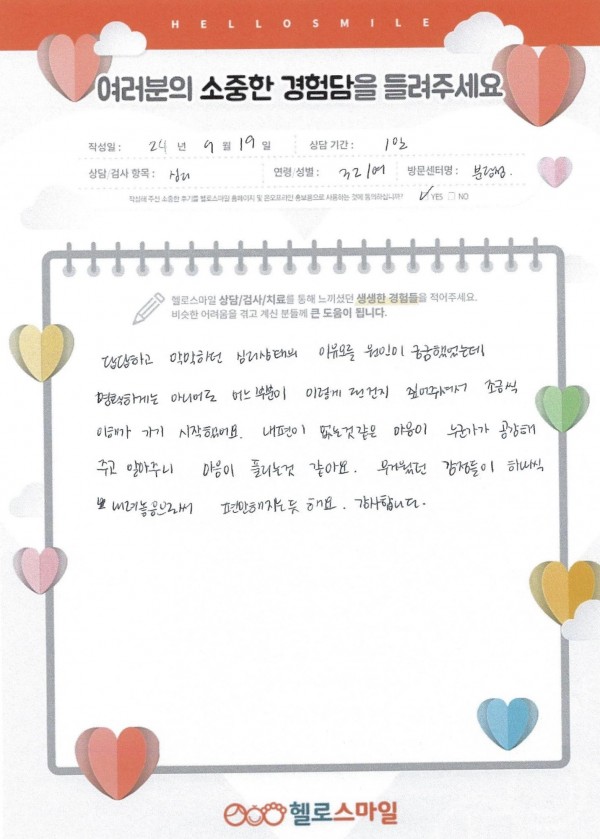 HELLOSMILE
여러분의 소중한 경험담을 들려주세요
작성일 : 24 년 9 월 19 일 상담 기간 : 1일
상담/검사 항목 : 심리 연령/성별 : 32/여 방문센터명 : 분당센터
작성해 주신 소중한 후기를 헬로스마일 홈페이지 및 온오프라인 홍보용으로 사용하는 것에 동의하십니까? ✓ YES □ NO
헬로스마일 상담/검사/치료를 통해 느끼셨던 생생한 경험들을 적어주세요.
비슷한 어려움을 겪고 계신 분들께 큰 도움이 됩니다.
답답하고 막막하던 심리상태의 이유모를 원인이 궁금했었는데
명확하게는 아니어도 어느부분이 이렇게 된건지 짚어주셔서 조금씩
이해가 가기 시작했어요. 내편이 없는것같은 마음이 누군가가 공감해
주고 알아주니 마음이 풀리는것 같아요. 무거웠던 감정들이 하나씩
내려놓음으로써 편안해지는듯 해요. 감사합니다.
헬로스마일